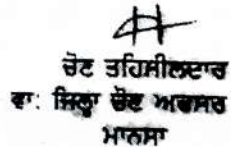 ਚੋਣ ਤਹਿਸੀਲਦਾਰ
ਵਾ: ਜਿਲ੍ਹਾ ਚੋਣ ਅਫਸਰ
ਮਾਨਸਾ